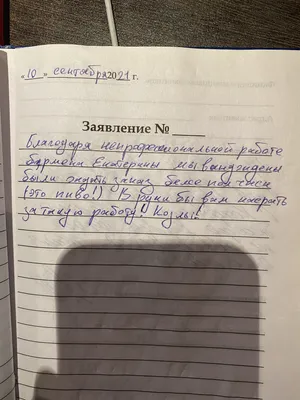 «10» сентября 2021 г.
Заявление № ____
Благодаря непрофессиональной работе
бармена Екатерины мы вынуждены
были ждать заказ более получаса
(это пиво!) В руки бы вам насрать
за такую работу! Козлы!